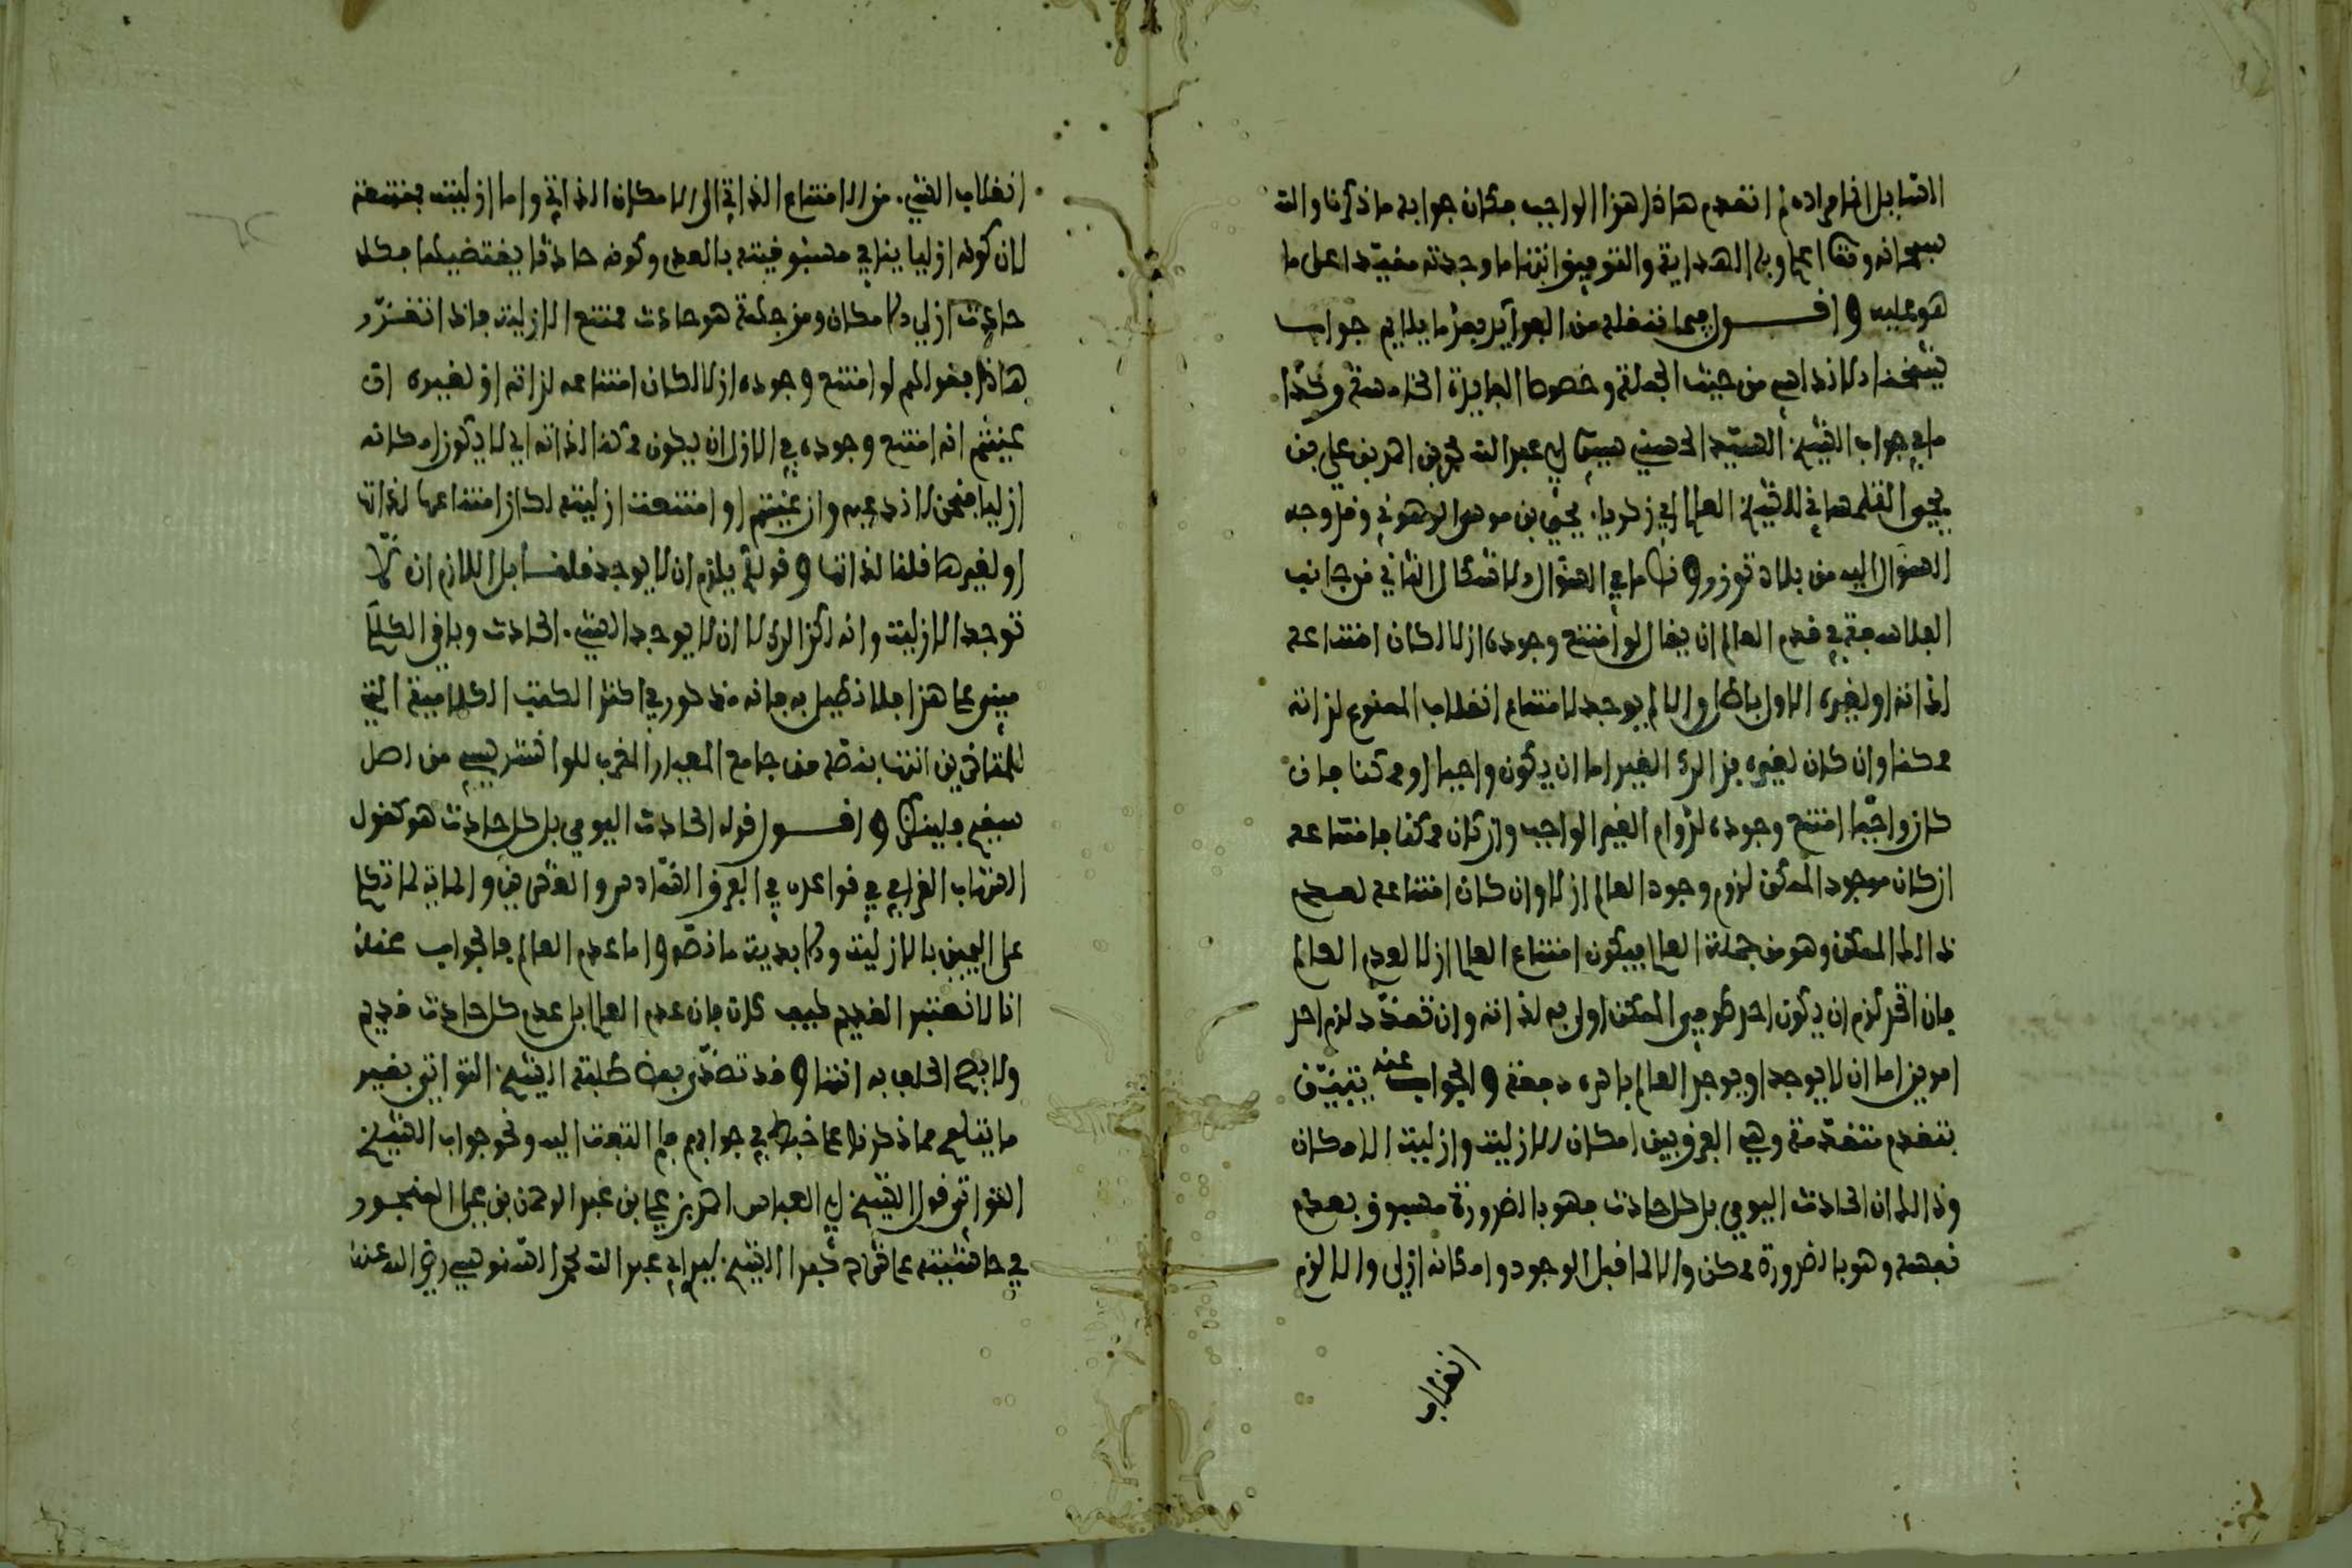 القابل انما مراده لم انعدم هاذا هذا الواجب فكان جوابه ما ذكرنا والله
سبحانه وتعا اعلم وبه الهداية والتوفيق انتها ما وجدته مقيدا على ما
هو عليه واقول فيما نقله من الفوايد بعد ما يلايم جواب
شيخنا دلا من حيث الجملة وخصوصا الفايدة الخامسة وكذا
ما في جواب الشيخ السيد الحسني سيدي ابي عبد الله محمد بن احمد بن علي بن
يحيى التلمساني للشيخ العالم ابي زكريا يحيى بن موسى الرهوني وقد وجه
السؤال اليه من بلاد توزر ونص ما في السؤال الاشكال الثاني من جانب
الفلاسفة في قدم العالم ان يقال لو امتنع وجوده ازلا لكان امتناعه
لذاته او لغيره الاول باطل والا لم يوجد لامتناع انقلاب الممنوع لذاته
ممكنا وان كان لغيره فذالك الغير اما ان يكون واجبا او ممكنا فان
كان واجبا امتنع وجوده لدوام الغير الواجب وان كان ممكنا فامتناعه
ان كان موجود الممكن لزم وجود العالم ازلا وان كان امتناعه لعدم
ذالك الممكن وهو من جملة العالم فيكون امتناع العالم ازلا لعدم العالم
فان اتحد لزم ان يكون احد طرفي الممكن اولى به لذاته وان تعدد لزم احد
امرين اما ان لا يوجد او يوجد العالم باسره دفعة والجواب عنه يتبين
بتقدم متقدمة وهي الفرق بين امكان الازلية وازلية الامكان
وذالك ان الحادث اليومي بل كل حادث فهو بالضرورة مسبوق بعدم
نفسه وهو بالضرورة ممكن والا لما قبل الوجود وامكانه ازلي والا لزم
انقلاب
انقلاب الشيء من الامتناع الذاتي الى الامكان الذاتي واما ازليته فممتنعة
لان كونه ازليا ينافي مسبوقيته بالعدم وكونه حادثا يقتضيها فكل
حادث ازلي الامكان ومن جملة هو حادث ممتنع الازلية فاذا تقرر
هاذا فقولكم لو امتنع وجوده ازلا لكان امتناعه لذاته او لغيره ان
عنيتم انه امتنع وجوده في الازل ان يكون ممكنا لذاته اي لا يكون امكانه
ازليا فنحن لا ندعيه وان عنيتم او امتنعت ازليته لكان امتناعها لذاتها
او لغيرها قلنا لذاتها وقولكم يلزم ان لا يوجد قلنا بل اللازم ان لا
توجد الازلية وانه اكن الدي لا ان لا يوجد الشيء الحادث وباقي الكلام
مبني على هذا فلا نطيل به فانه مذكور في اكثر الكتب الكلامية التي
للمتاخرين انتها بنصه من جامع المعيار المغرب للوانشريسي من اصل
سقيم واقول قوله الحادث اليومي بل كل حادث هو كقول
الشهاب القرافي في قواعده في الفرق السادس والعشرين والماية لما تكلم
على اليمين بالازلية والابدية ما نصه واما عدم العالم فالجواب عنه
انا لا نعتبر القديم كيف كان فان عدم العالم بل عدم كل حادث قديم
ولا يصح الحلف به انتها وقد تصدى بعض طلبة الشيخ التواتي بغير
ما يتلقى مما ذكرنا على خبط في جوابهم فلم التفت اليه ونحو جواب الشيخ
التواتي قول الشيخ ابي العباس احمد بن علي بن عبد الرحمن بن عبد المنجور
في حاشيته على شرح كبرى الشيخ سيدي ابي عبد الله محمد السنوسي رضي الله عنه